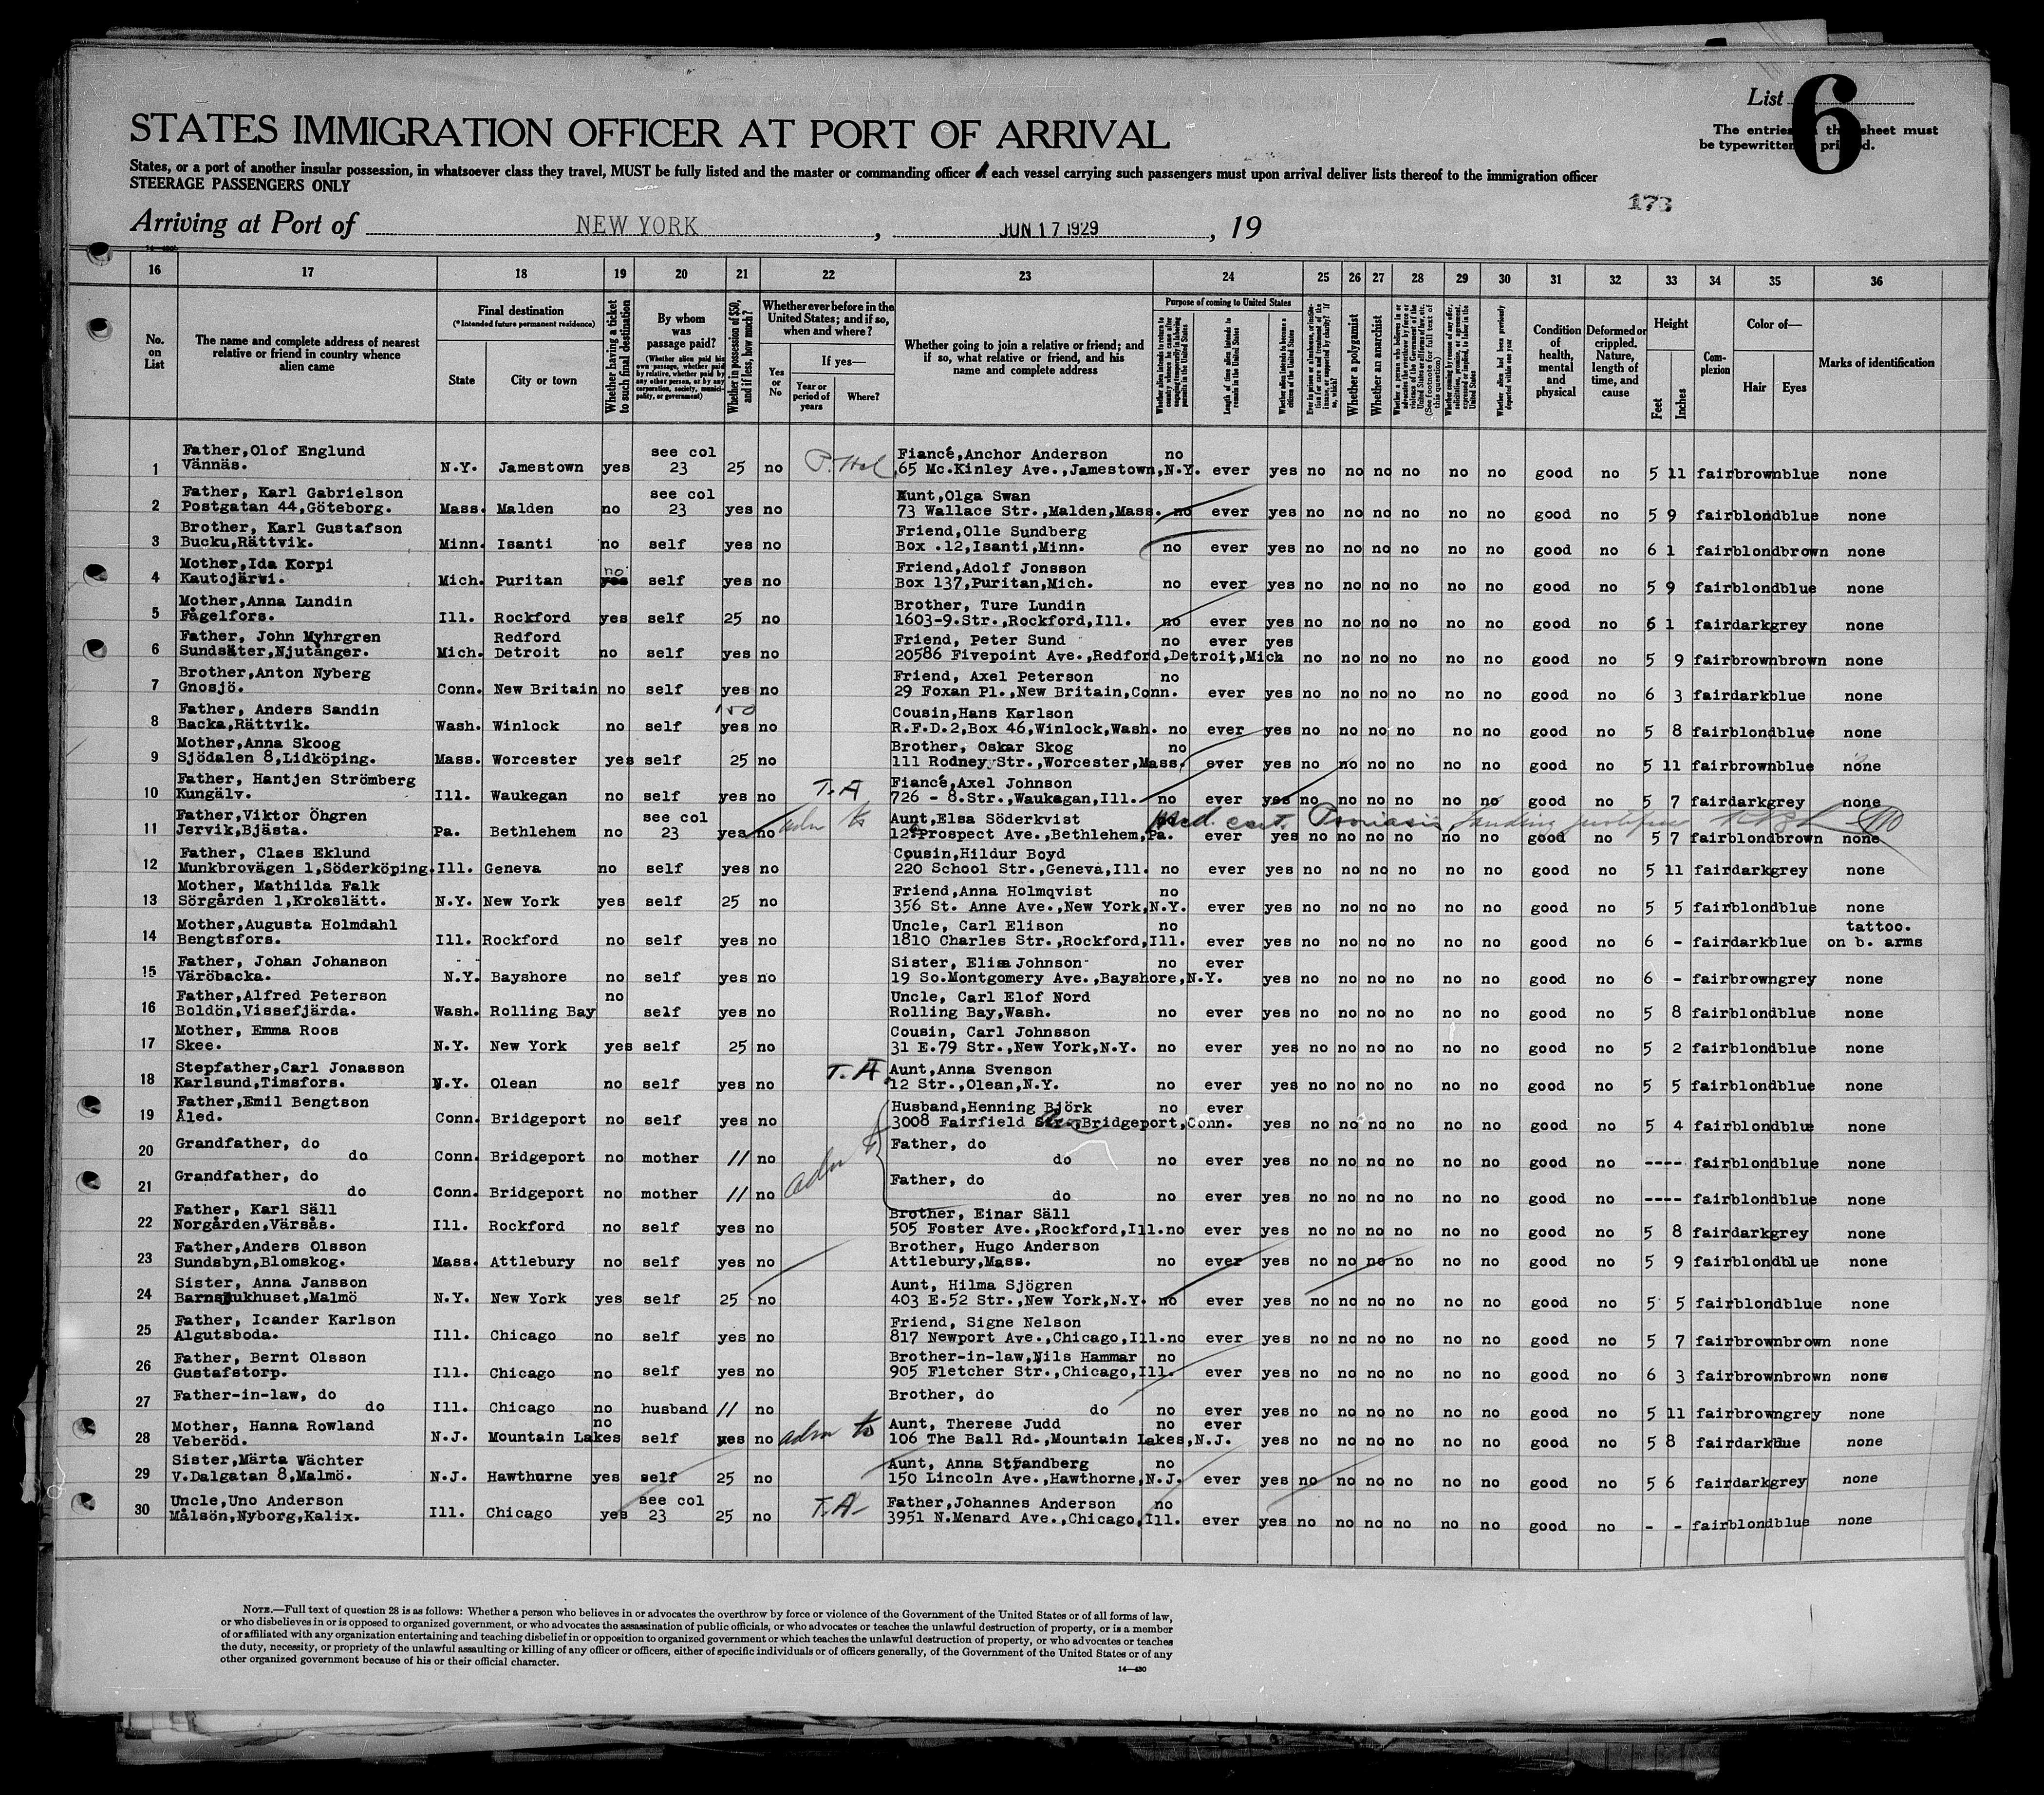 List 6
STATES IMMIGRATION OFFICER AT PORT OF ARRIVAL
The entries on this sheet must
be typewritten or printed.
States, or a port of another insular possession, in whatsoever class they travel, MUST be fully listed and the master or commanding officer of each vessel carrying such passengers must upon arrival deliver lists thereof to the immigration officer
STEERAGE PASSENGERS ONLY
173
Arriving at Port of NEW YORK, JUN 17 1929, 19
16 17 18 19 20 21 22 23 24 25 26 27 28 29 30 31 32 33 34 35 36
No. on List
The name and complete address of nearest relative or friend in country whence alien came
Final destination
(*Intended future permanent residence)
State
City or town
Whether having a ticket to such final destination
By whom was passage paid?
(Whether alien paid his own passage, whether paid by relative, whether paid by any other person, or by any corporation, society, municipality, or government)
Whether in possession of $50, and if less, how much?
Whether ever before in the United States; and if so, when and where?
Yes or No
If yes—
Year or period of years
Where?
Whether going to join a relative or friend; and if so, what relative or friend, and his name and complete address
Purpose of coming to United States
Length of time alien intends to remain in the United States
Whether alien intends to become a citizen of the United States
Whether a polygamist
Whether an anarchist
Condition of health, mental and physical
Deformed or crippled. Nature, length of time, and cause
Height
Feet
Inches
Complexion
Color of—
Hair
Eyes
Marks of identification
1 Father,Olof Englund see col Fiancé,Anchor Anderson no
Vännäs. N.Y. Jamestown yes 23 25 no 65 Mc.Kinley Ave.,Jamestown,N.Y. ever yes no no no no no no good no 5 11 fair brown blue none
2 Father, Karl Gabrielson see col Aunt,Olga Swan
Postgatan 44,Göteborg. Mass. Malden no 23 yes no 73 Wallace Str.,Malden,Mass. no ever yes no no no no no no good no 5 9 fair blond blue none
3 Brother, Karl Gustafson Friend,Olle Sundberg
Bucku,Rättvik. Minn. Isanti no self yes no Box .12,Isanti,Minn. no ever yes no no no no no no good no 6 1 fair blond brown none
4 Mother,Ida Korpi no Friend,Adolf Jonsson
Kautojärvi. Mich. Puritan yes self yes no Box 137,Puritan,Mich. no ever yes no no no no no no good no 5 9 fair blond blue none
5 Mother,Anna Lundin Brother, Ture Lundin
Fågelfors. Ill. Rockford yes self 25 no 1603-9.Str.,Rockford,Ill. no ever yes no no no no no no good no 6 1 fair dark grey none
6 Father, John Myhrgren Redford Friend, Peter Sund no ever yes
Sundsäter,Njutånger. Mich. Detroit no self yes no 20586 Fivepoint Ave.,Redford,Detroit,Mich no no no no no no good no 5 9 fair brown brown none
7 Brother,Anton Nyberg Friend, Axel Peterson no
Gnosjö. Conn. New Britain no self yes no 29 Foxan Pl.,New Britain,Conn. ever yes no no no no no no good no 6 3 fair dark blue none
8 Father, Anders Sandin Cousin,Hans Karlson
Backa,Rättvik. Wash. Winlock no self yes no R.F.D.2,Box 46,Winlock,Wash. no ever yes no no no no no no good no 5 8 fair blond blue none
9 Mother,Anna Skoog Brother, Oskar Skog no
Sjödalen 8,Lidköping. Mass. Worcester yes self 25 no 111 Rodney Str.,Worcester,Mass. ever yes no no no no no no good no 5 11 fair brown blue none
10 Father, Hantjen Strömberg T.A Fiancé,Axel Johnson
Kungälv. Ill. Waukegan no self yes no 726 - 8.Str.,Waukagan,Ill. no ever yes no no no no no no good no 5 7 fair dark grey none
11 Father,Viktor Öhgren see col adm to Aunt,Elsa Söderkvist med. cert. Psoriasis
Jervik,Bjästa. Pa. Bethlehem no 23 yes no Prospect Ave.,Bethlehem,Pa. ever yes no no no no no no good no 5 7 fair blond brown none
12 Father, Claes Eklund Cousin,Hildur Boyd
Munkbrovägen 1,Söderköping. Ill. Geneva no self yes no 220 School Str.,Geneva,Ill. no ever yes no no no no no no good no 5 11 fair dark grey none
13 Mother, Mathilda Falk Friend,Anna Holmqvist no
Sörgården 1,Krokslätt. N.Y. New York yes self 25 no 356 St. Anne Ave.,New York,N.Y. ever yes no no no no no no good no 5 5 fair blond blue none
14 Mother,Augusta Holmdahl Uncle, Carl Elison no tattoo.
Bengtsfors. Ill. Rockford no self yes no 1810 Charles Str.,Rockford,Ill. ever yes no no no no no no good no 6 - fair dark blue on b. arms
15 Father, Johan Johanson Sister, Elisa Johnson no ever
Väröbacka. N.Y. Bayshore no self yes no 19 So.Montgomery Ave.,Bayshore,N.Y. yes no no no no no no good no 6 - fair brown grey none
16 Father,Alfred Peterson no Uncle, Carl Elof Nord
Boldön,Vissefjärda. Wash. Rolling Bay self yes no Rolling Bay,Wash. no ever yes no no no no no no good no 5 8 fair blond blue none
17 Mother, Emma Roos Cousin, Carl Johnsson
Skee. N.Y. New York yes self 25 no 31 E.79 Str.,New York,N.Y. no ever yes no no no no no no good no 5 2 fair blond blue none
18 Stepfather,Carl Jonasson T.A Aunt,Anna Svenson
Karlsund,Timsfors. N.Y. Olean no self yes no 12 Str.,Olean,N.Y. no ever yes no no no no no no good no 5 5 fair blond blue none
19 Father,Emil Bengtson Husband,Henning Björk no ever
Åled. Conn. Bridgeport no self yes no 3008 Fairfield Ave Bridgeport,Conn. yes no no no no no no good no 5 4 fair blond blue none
20 Grandfather, do Father, do
do Conn. Bridgeport no mother // no adm to do no ever yes no no no no no no good no ---- fair blond blue none
21 Grandfather, do Father, do
do Conn. Bridgeport no mother // no do no ever yes no no no no no no good no ---- fair blond blue none
22 Father, Karl Säll Brother, Einar Säll
Norgården,Värsås. Ill. Rockford no self yes no 505 Foster Ave.,Rockford,Ill. no ever yes no no no no no no good no 5 8 fair dark grey none
23 Father,Anders Olsson Brother, Hugo Anderson
Sundsbyn,Blomskog. Mass. Attlebury no self yes no Attlebury,Mass. no ever yes no no no no no no good no 5 9 fair blond blue none
24 Sister, Anna Jansson Aunt, Hilma Sjögren
Barnsjukhuset,Malmö N.Y. New York yes self 25 no 403 E.52 Str.,New York,N.Y. no ever yes no no no no no no good no 5 5 fair blond blue none
25 Father, Icander Karlson Friend, Signe Nelson
Algutsboda. Ill. Chicago no self yes no 817 Newport Ave.,Chicago,Ill. no ever yes no no no no no no good no 5 7 fair brown brown none
26 Father, Bernt Olsson Brother-in-law,Nils Hammar no
Gustafstorp. Ill. Chicago no self yes no 905 Fletcher Str.,Chicago,Ill. ever yes no no no no no no good no 6 3 fair brown brown none
27 Father-in-law, do Brother, do
do Ill. Chicago no husband // no do no ever yes no no no no no no good no 5 11 fair brown grey none
28 Mother, Hanna Rowland no Aunt, Therese Judd no ever
Veberöd. N.J. Mountain Lakes self yes no adm to 106 The Ball Rd.,Mountain Lakes,N.J. yes no no no no no no good no 5 8 fair dark blue none
29 Sister,Märta Wächter Aunt, Anna Strandberg no
V.Dalgatan 8,Malmö. N.J. Hawthurne yes self 25 no 150 Lincoln Ave.,Hawthorne,N.J. ever yes no no no no no no good no 5 6 fair dark grey none
30 Uncle,Uno Anderson see col T.A- Father,Johannes Anderson no
Målsön,Nyborg,Kalix. Ill. Chicago yes 23 25 no 3951 N.Menard Ave.,Chicago,Ill. ever yes no no no no no no good no - - fair blond blue none
NOTE.—Full text of question 28 is as follows: Whether a person who believes in or advocates the overthrow by force or violence of the Government of the United States or of all forms of law,
or who disbelieves in or is opposed to organized government, or who advocates the assassination of public officials, or who advocates or teaches the unlawful destruction of property, or is a member
of or affiliated with any organization entertaining and teaching disbelief in or opposition to organized government or which teaches the unlawful destruction of property, or who advocates or teaches
the duty, necessity, or propriety of the unlawful assaulting or killing of any officer or officers, either of specific individuals or of officers generally, of the Government of the United States or of any
other organized government because of his or their official character.
14—430